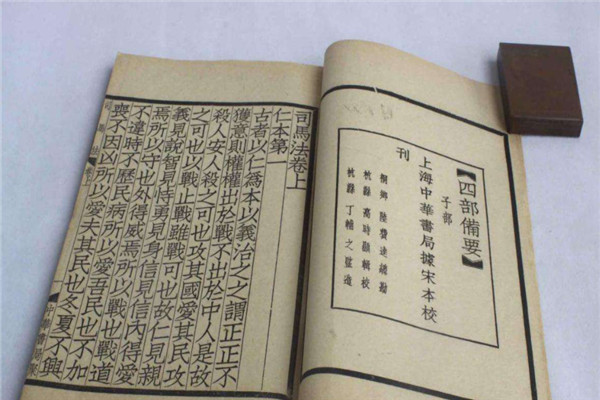 【四部備要】
子部
上海中華書局據宋本校
刊
桐鄉 陸費逵總勘
杭縣 高時顯輯校
杭縣 丁輔之監造
司馬法卷上
仁本第一
古者以仁為本以義治之之謂正正不
獲意則權權出於戰不出於中人是故
殺人安人殺之可也攻其國愛其民攻
之可也以戰止戰雖戰可也故仁見親
義見說智見恃勇見身信見信內得愛
焉所以守也外得威焉所以戰也戰道
不違時不歷民病所以愛吾民也不加
喪不因凶所以愛夫其民也冬夏不興